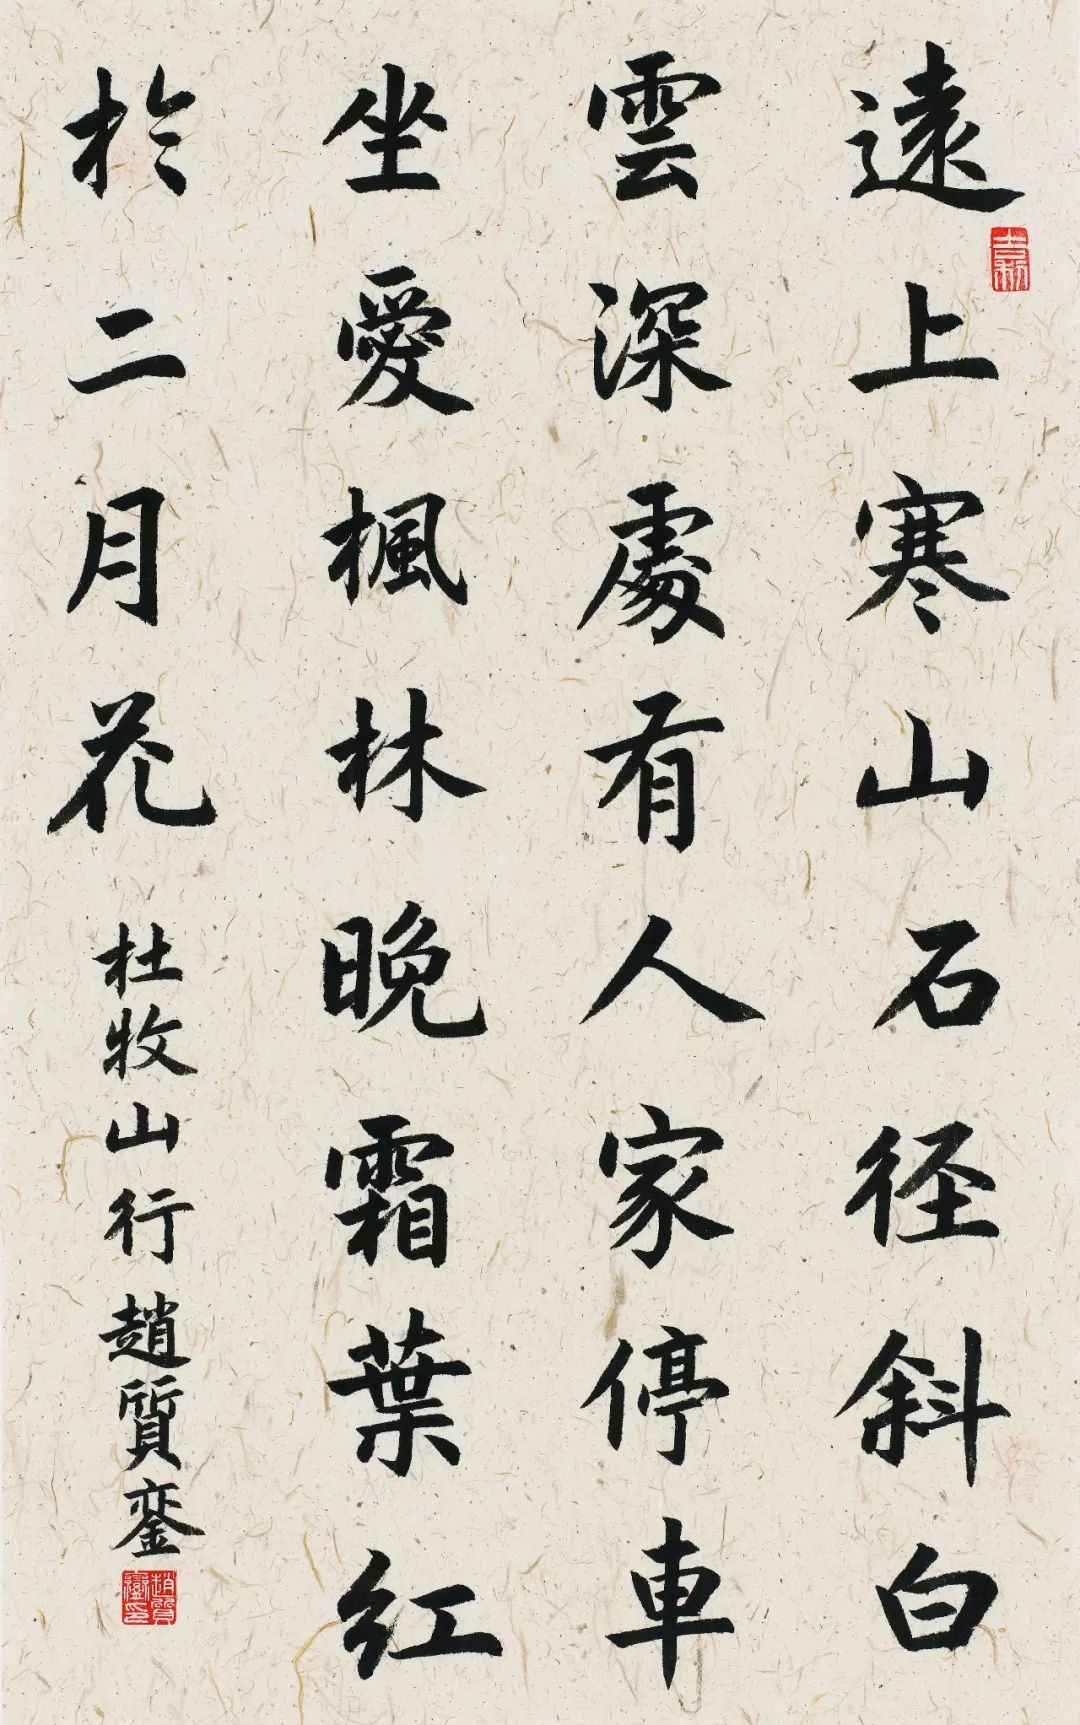 遠上寒山石径斜白
雲深處有人家停車
坐愛楓林晚霜葉红
於二月花
杜牧山行趙質鑾
趙質鑾印